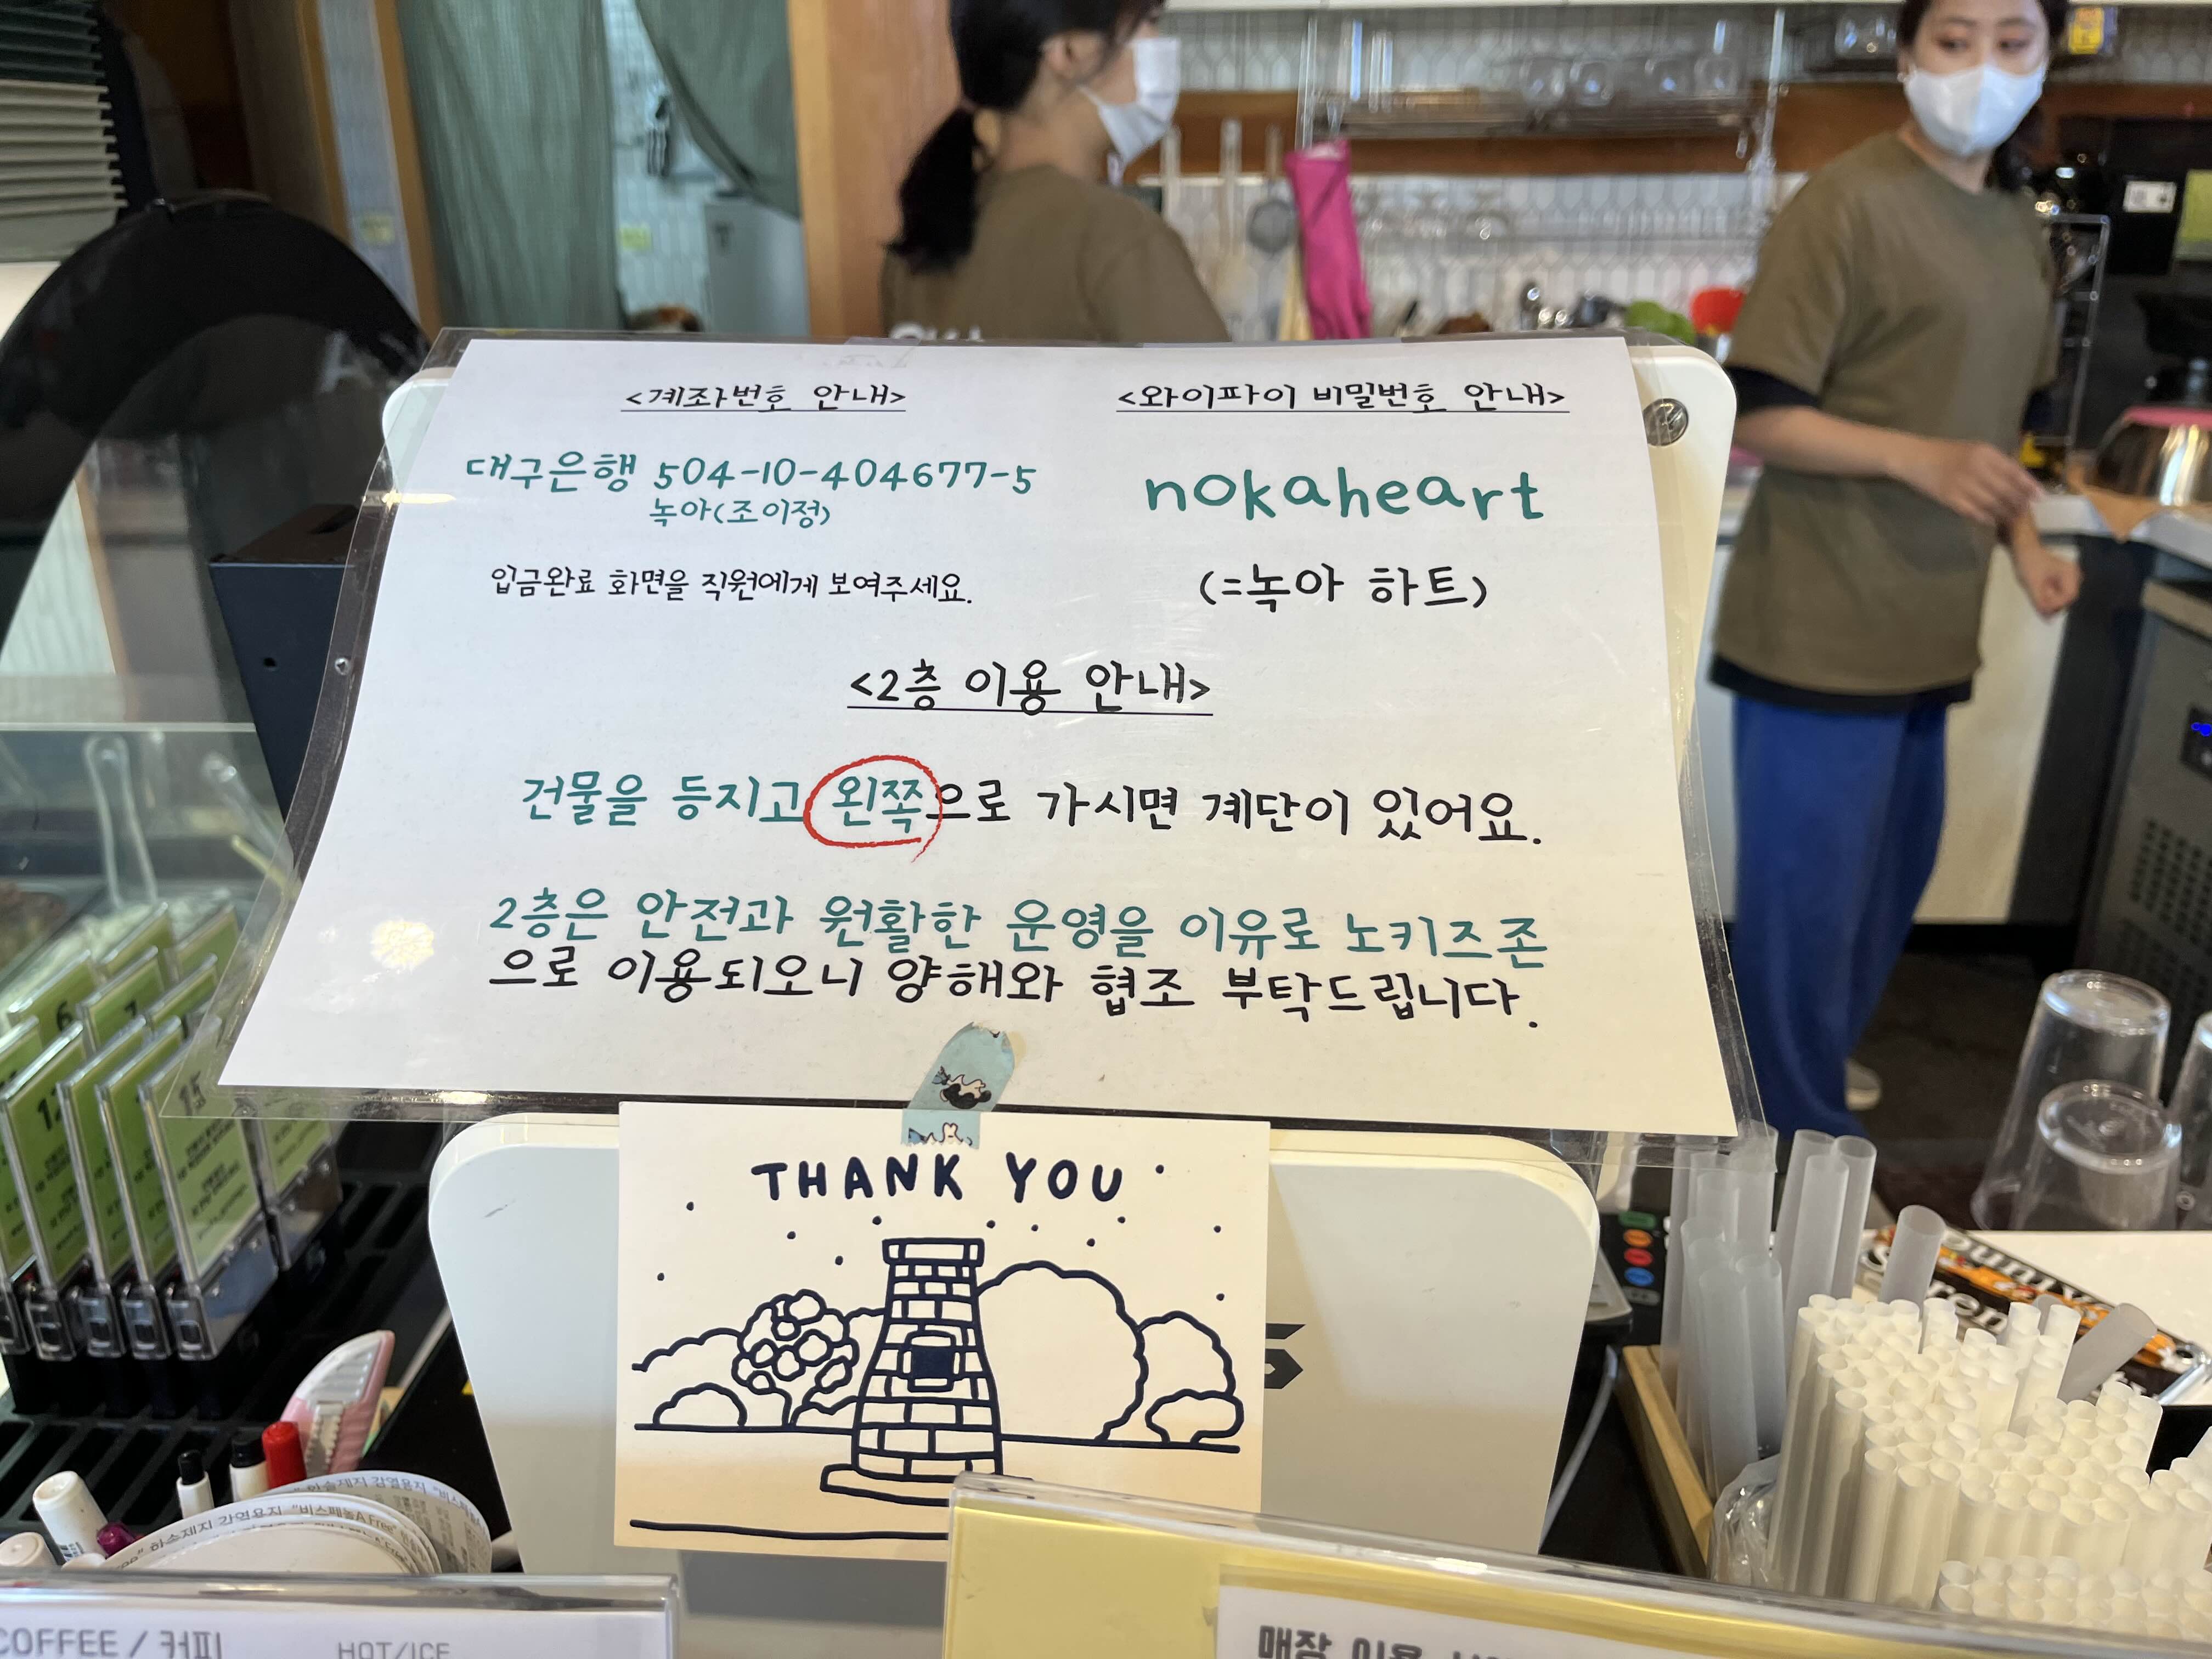 <계좌번호 안내>
대구은행 504-10-404677-5
녹아(조이정)
입금완료 화면을 직원에게 보여주세요.
<와이파이 비밀번호 안내>
nokaheart
(=녹아 하트)
<2층 이용 안내>
건물을 등지고 왼쪽으로 가시면 계단이 있어요.
2층은 안전과 원활한 운영을 이유로 노키즈존
으로 이용되오니 양해와 협조 부탁드립니다.
THANK YOU
COFFEE / 커피 HOT/ICE
매장 이용